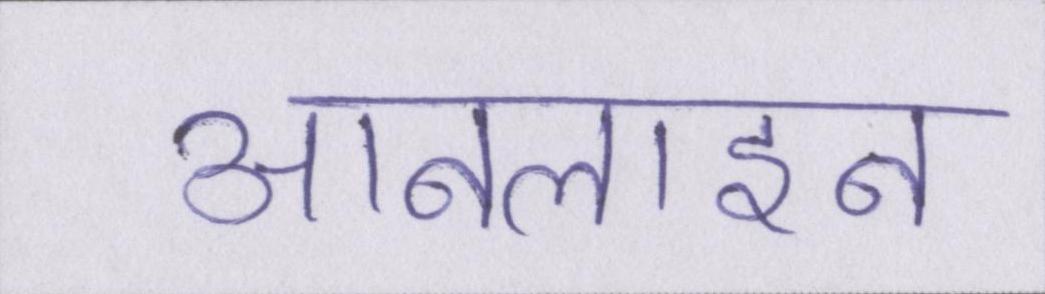 आनलाइन